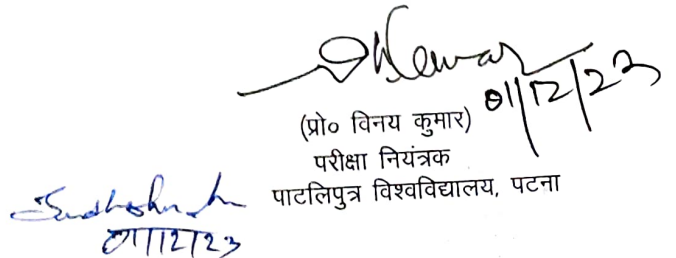 01/12/23
(प्रो० विनय कुमार)
परीक्षा नियंत्रक
पाटलिपुत्र विश्वविद्यालय, पटना
01/12/23